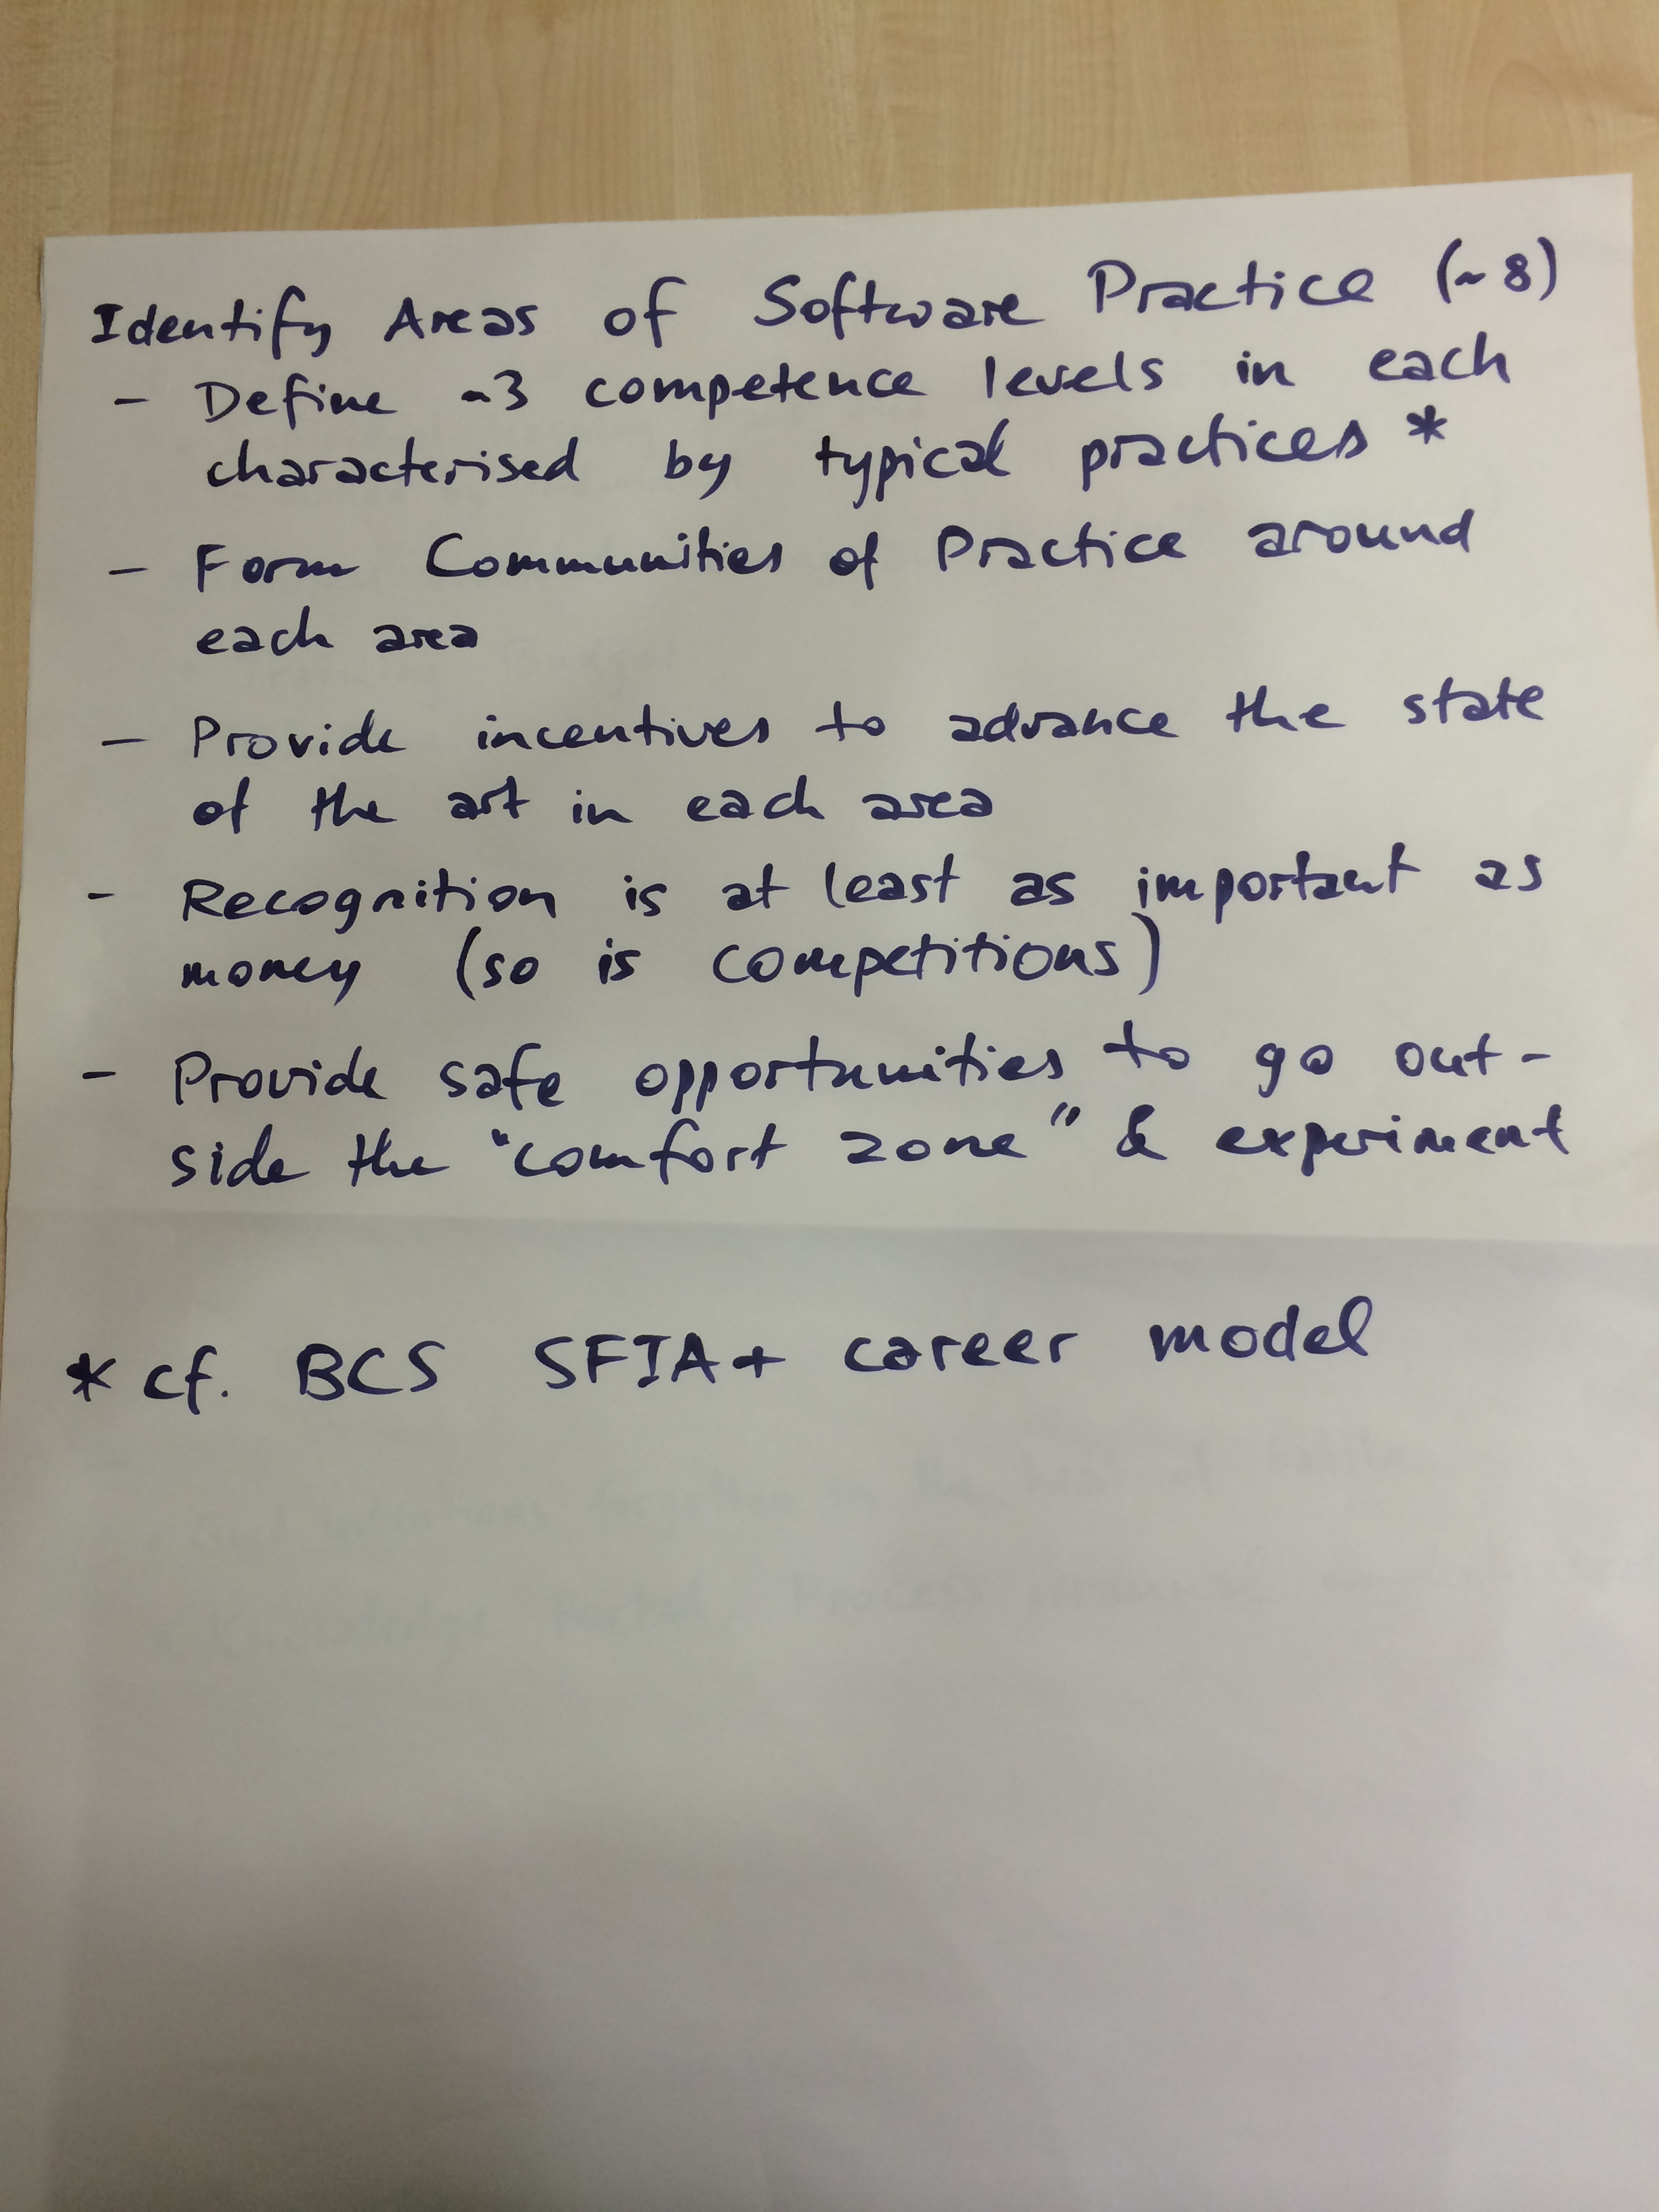 Identify Areas of Software Practice (~8)
- Define ~3 competence levels in each
characterised by typical practices *
- Form Communities of Practice around
each area
- Provide incentives to advance the state
of the art in each area
- Recognition is at least as important as
money (so is competitions)
- Provide safe opportunities to go out-
side the "comfort zone" & experiment
* cf. BCS SFIA+ career model